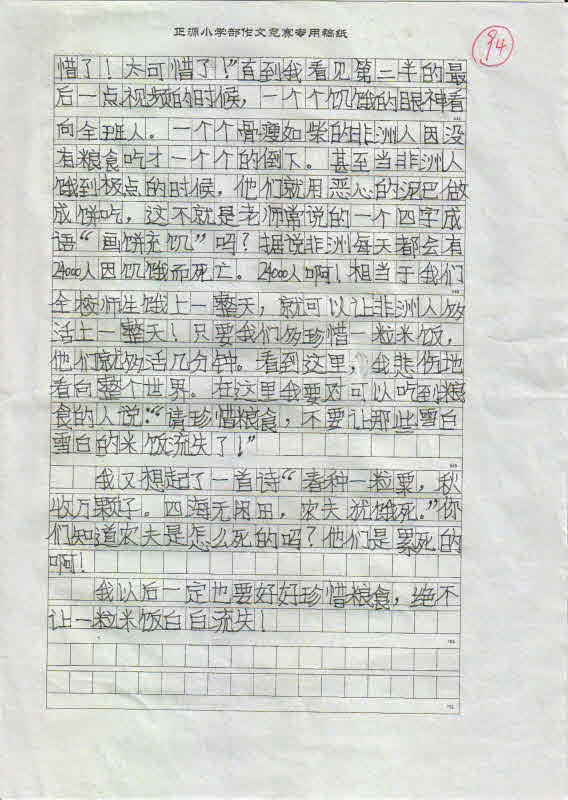 正源小学部作文竞赛专用稿纸
94
惜了！太可惜了！”直到我看见第二半的最
后一点视频的时候，一个个饥饿的眼神看
向全班人。一个个骨瘦如柴的非洲人因没
有粮食吃才一个个的倒下。甚至当非洲人
饿到极点的时候，他们就用恶心的泥巴做
成饼吃，这不就是老师常说的一个四字成
语“画饼充饥”吗？据说非洲每天都会有
24000人因饥饿而死亡。24000人啊！相当于我们
全校师生饿上一整天，就可以让非洲人够
活上一整天！只要我们多珍惜一粒米饭，
他们就够活几分钟。看到这里，我悲伤地
看向整个世界。在这里我要对可以吃到粮
食的人说：“请珍惜粮食，不要让那些雪白
雪白的米饭流失了！”
我又想起了一首诗“春种一粒粟，秋
收万颗子。四海无闲田，农夫犹饿死。”你
们知道农夫是怎么死的吗？他们是累死的
啊！
我以后一定也要好好珍惜粮食，绝不
让一粒米饭白白流失！